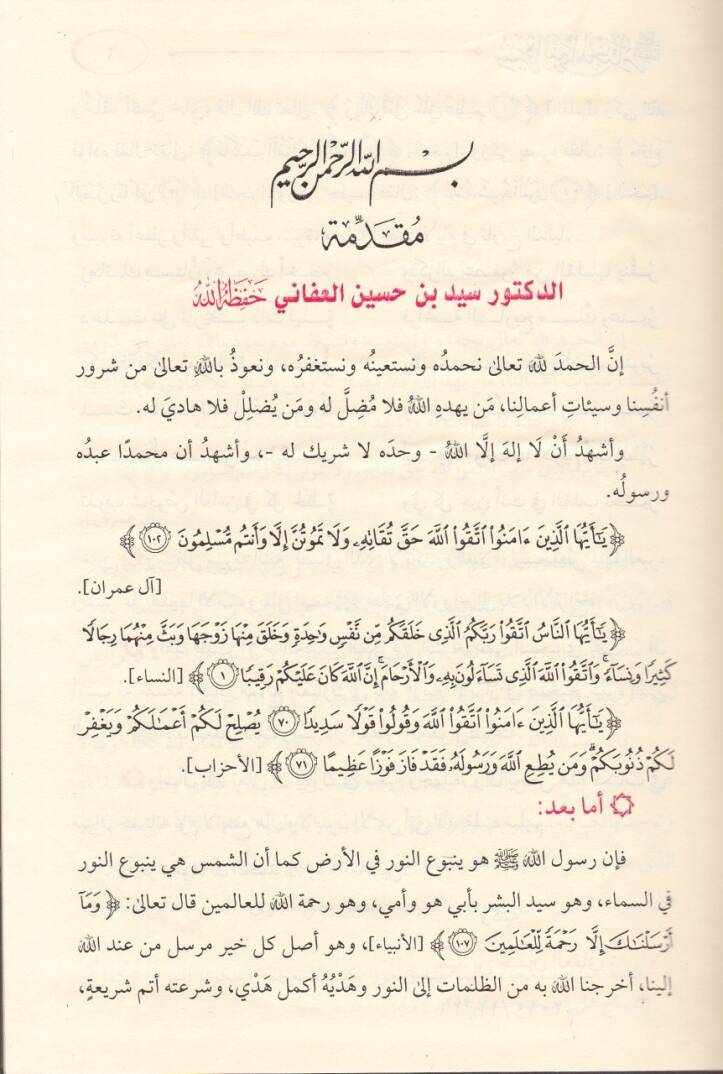 بسم الله الرحمن الرحيم
مُقدِّمة
الدكتور سيد بن حسين العفاني حَفِظَهُ اللهُ
إنَّ الحمدَ للهِ تعالىٰ نحمدُه ونستعينُه ونستغفرُه، ونعوذُ باللهِ تعالىٰ من شرور
أنفُسِنا وسيئاتِ أعمالِنا، مَن يهدهِ اللهُ فلا مُضِلَّ له ومَن يُضلِلْ فلا هاديَ له.
وأشهدُ أَنْ لَا إلهَ إلَّا اللهُ - وحدَه لا شريك له -، وأشهدُ أن محمدًا عبدُه
ورسولُه.
﴿ يَٰٓأَيُّهَا ٱلَّذِينَ ءَامَنُوا۟ ٱتَّقُوا۟ ٱللَّهَ حَقَّ تُقَاتِهِۦ وَلَا تَمُوتُنَّ إِلَّا وَأَنتُم مُّسْلِمُونَ ١٠٢ ﴾
[آل عمران].
﴿ يَٰٓأَيُّهَا ٱلنَّاسُ ٱتَّقُوا۟ رَبَّكُمُ ٱلَّذِى خَلَقَكُم مِّن نَّفْسٍ وَٰحِدَةٍ وَخَلَقَ مِنْهَا زَوْجَهَا وَبَثَّ مِنْهُمَا رِجَالًا
كَثِيرًا وَنِسَآءً ۚ وَٱتَّقُوا۟ ٱللَّهَ ٱلَّذِى تَسَآءَلُونَ بِهِۦ وَٱلْأَرْحَامَ ۚ إِنَّ ٱللَّهَ كَانَ عَلَيْكُمْ رَقِيبًا ١ ﴾ [النساء].
﴿ يَٰٓأَيُّهَا ٱلَّذِينَ ءَامَنُوا۟ ٱتَّقُوا۟ ٱللَّهَ وَقُولُوا۟ قَوْلًا سَدِيدًا ٧٠ يُصْلِحْ لَكُمْ أَعْمَٰلَكُمْ وَيَغْفِرْ
لَكُمْ ذُنُوبَكُمْ ۗ وَمَن يُطِعِ ٱللَّهَ وَرَسُولَهُۥ فَقَدْ فَازَ فَوْزًا عَظِيمًا ٧١ ﴾ [الأحزاب].
أما بعد:
فإن رسول الله ﷺ هو ينبوع النور في الأرض كما أن الشمس هي ينبوع النور
في السماء، وهو سيد البشر بأبي هو وأمي، وهو رحمة الله للعالمين قال تعالىٰ: ﴿ وَمَآ
أَرْسَلْنَٰكَ إِلَّا رَحْمَةً لِّلْعَٰلَمِينَ ١٠٧ ﴾ [الأنبياء]، وهو أصل كل خير مرسل من عند الله
إلينا، أخرجنا الله به من الظلمات إلىٰ النور وهَدْيُهُ أكمل هَدْي، وشرعته أتم شريعةٍ،